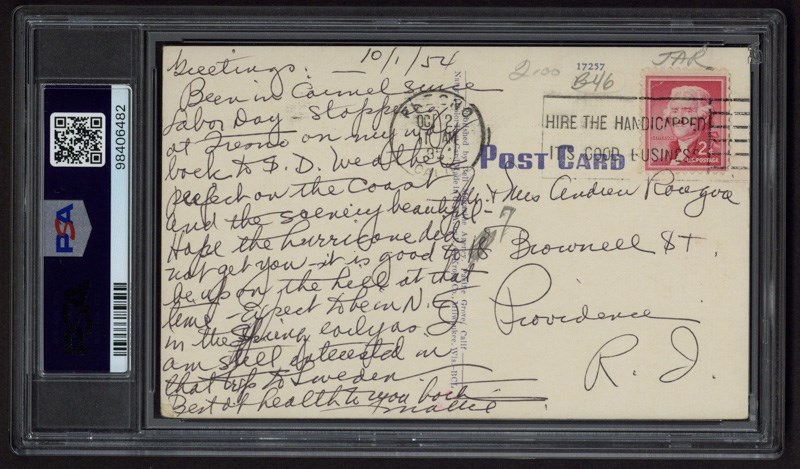 PSA
98406482
Greetings: 10/1/54
Been in Carmel since
Labor Day Stopped
at Fresno on my way
back to S.D. Weather
perfect on the Coast
and the scenery beautiful -
Hope the hurricane did
not get you - it is good to
be up on the hill at that
time - Expect to be in N.E.
in the Spring early as I
am still interested in
that trip to Sweden.
Best of health to you both
Mattie
2.00
17257
B46
JAR
FRESNO
OCT 2
CALIF
HIRE THE HANDICAPPED
IT'S GOOD BUSINESS
2¢
U.S. POSTAGE
POST CARD
Mr + Mrs Andrew
Brownell St.
Providence
R. I.